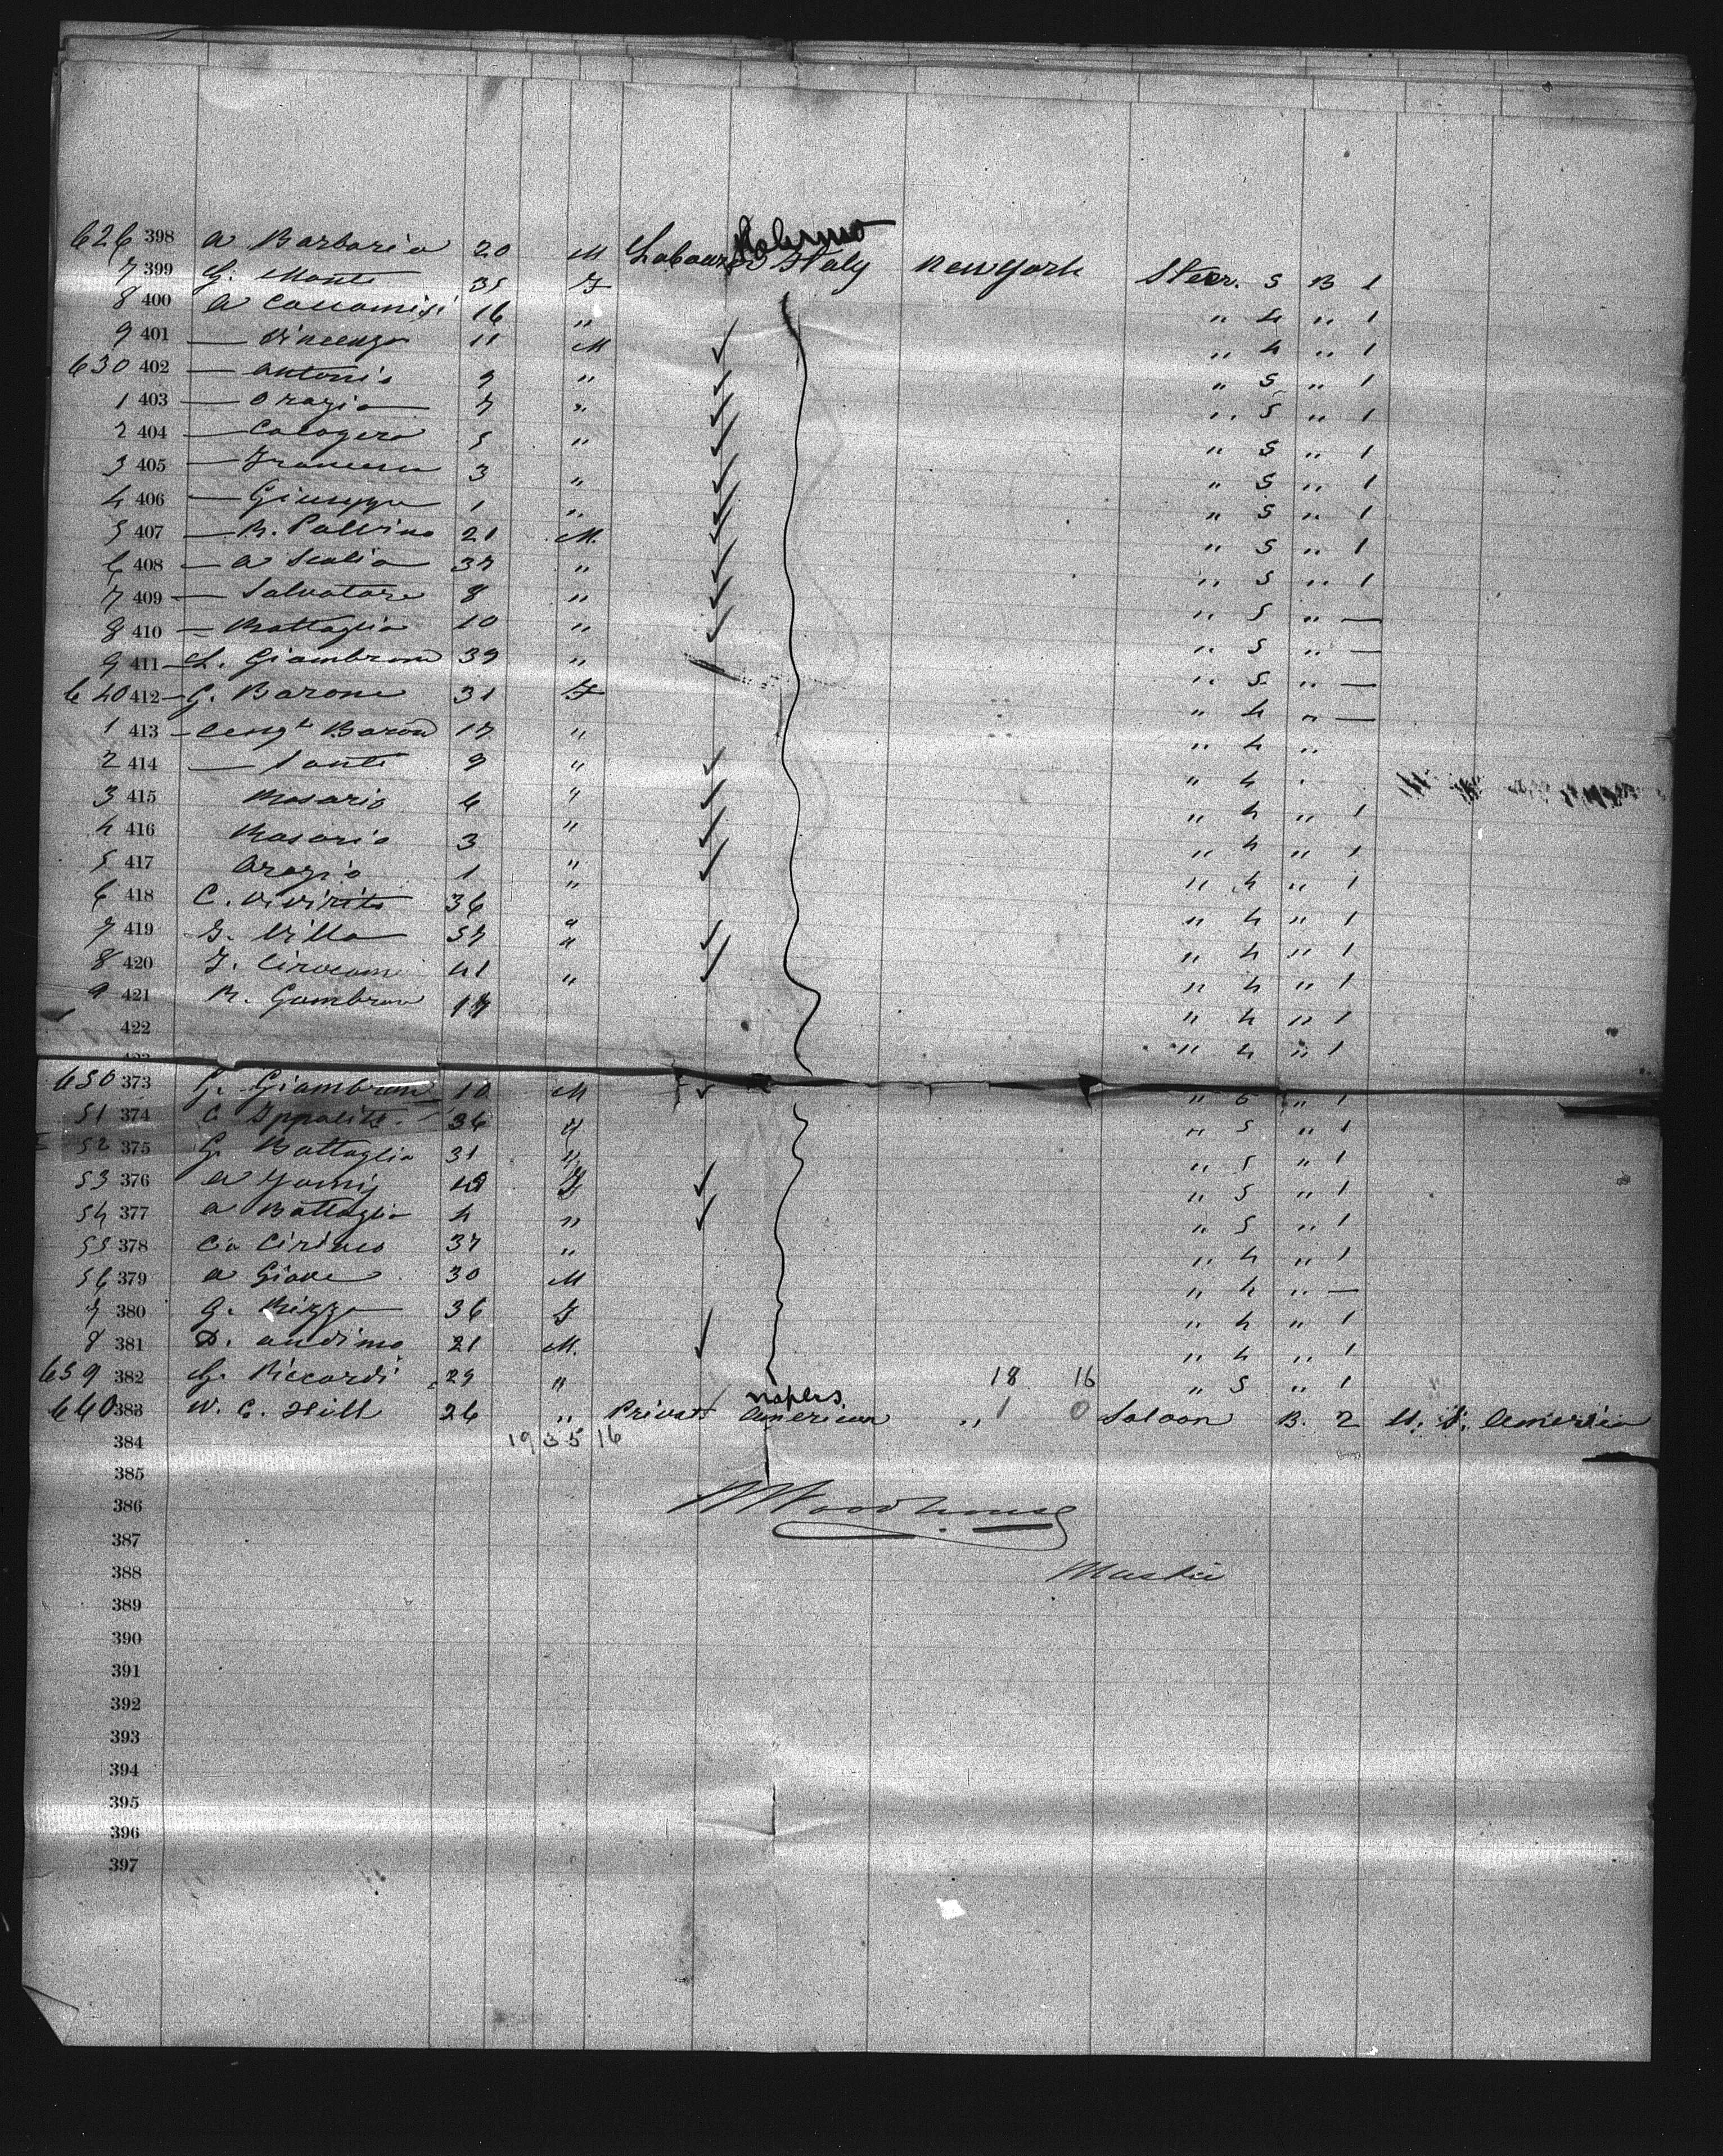 Palermo
626 398 A Barbaria 20 M Labourers Italy New York Steer. S B 1
7 399 G. Monte 35 F " 4 " 1
8 400 A 16 " " 4 " 1
9 401 — Vincenzo 11 M " S " 1
630 402 — Antonio 9 " " S " 1
1 403 — Orazio 7 " " S " 1
2 404 — Calogero 5 " " S " 1
3 405 — 3 " " S " 1
4 406 — Giuseppe 1 " " S " 1
5 407 — 21 M. " S " 1
6 408 — A Scalia 37 " " S " —
7 409 — Salvatore 8 " " S " —
8 410 — Battaglia 10 " " S " —
9 411 — Giambrone 39 " " 4 " —
640 412 — G. Barone 31 F " 4 "
1 413 — Baron 17 " " 4
2 414 — Sante 9 " " 4 " 1
3 415 Rosario 6 " " 4 " 1
4 416 Rosario 3 " " 4 " 1
5 417 Orazio 1 " " 4 " 1
6 418 C. Viririto 36 " " 4 " 1
7 419 G. Villa 57 " " 4 " 1
8 420 41 " " 4 " 1
9 421 R. Gambron " 4 " 1
422
423
650 373 G. Giambrone 10 M " " 1
51 374 C. Ippolite 36 " " S " 1
52 375 G. Battaglia 31 " " S " 1
53 376 A F " S " 1
54 377 A Battaglia 4 " " S " 1
55 378 37 " " 4 " 1
56 379 A Giove 30 M " 4 " —
7 380 G. Rizzo 36 F " 4 " 1
8 381 D. Andimo 21 M. " 4 " 1
659 382 G. Riccardi 29 " 18 16 " S " 1
Naples
660 383 W. C. Hill 26 " Privat American " 1 0 Saloon B. 2 U. S. America
384 19 35 16
385
386 Woodhouse
387
388 Master
389
390
391
392
393
394
395
396
397